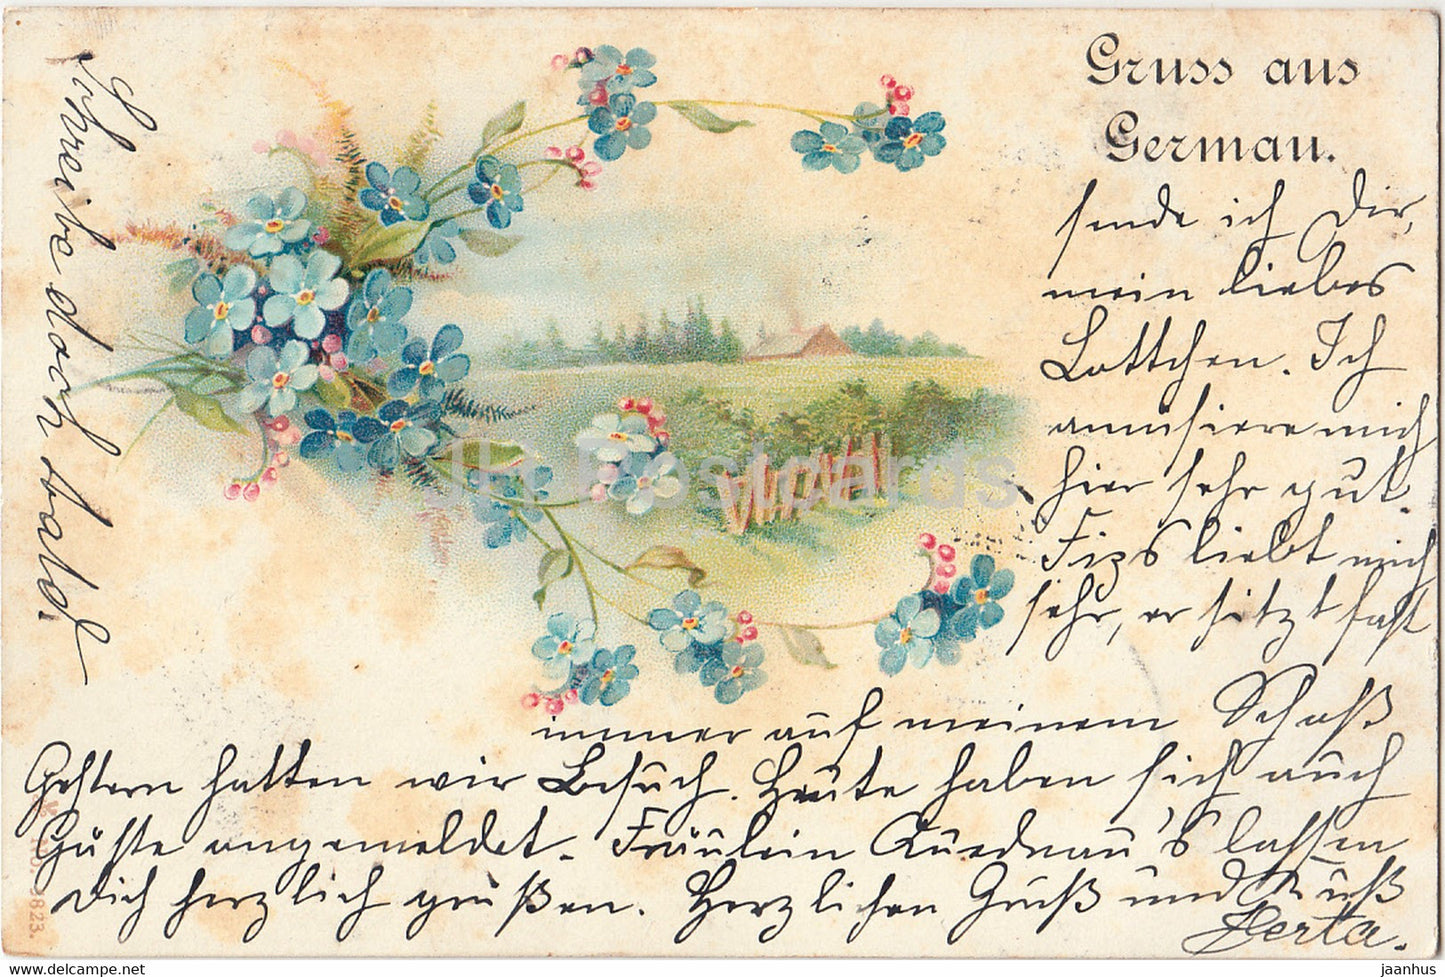 Gruss aus
Germau.
sende ich Dir,
mein liebes
Lottchen. Ich
amüsiere mich
hier sehr gut.
Fips liebt mich
sehr, er sitzt fast
immer auf meinem Schoß
Gestern hatten wir Besuch. Heute haben sich auch
Gäste angemeldet. Fräulein Quednau's lassen
Dich herzlich grüßen. Herzlichen Gruß und Kuß
Herta.
Schreibe doch bald!
3823.
JH Postcards
delcampe.net
jaanhus